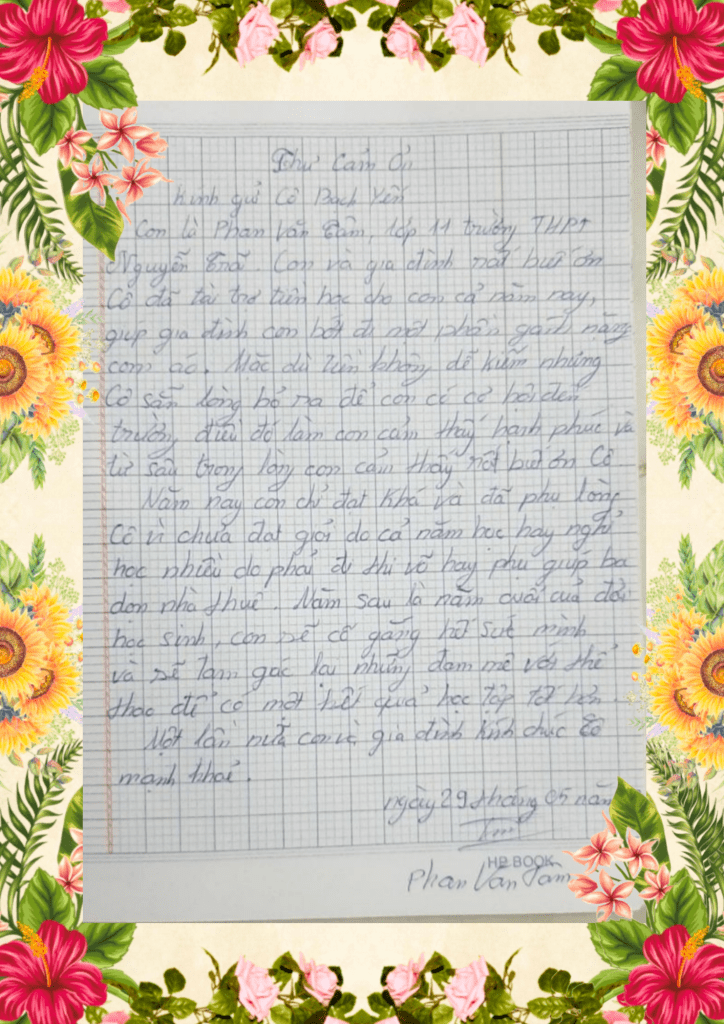 Thư Cảm Ơn
Kính gửi Cô Bạch Yến
Con là Phan Văn Tâm, lớp 11 trường THPT
Nguyễn Trãi. Con và gia đình rất biết ơn
Cô đã tài trợ tiền học cho con cả năm nay,
giúp gia đình con bớt đi một phần gánh nặng
cơm áo. Mặc dù tiền không dễ kiếm nhưng
Cô sẵn lòng bỏ ra để con có cơ hội đến
trường điều đó làm con cảm thấy hạnh phúc và
từ sâu trong lòng con cảm thấy rất biết ơn Cô.
Năm nay con chỉ đạt Khá và đã phụ lòng
Cô vì chưa đạt giỏi do cả năm học hay nghỉ
học nhiều do phải đi thi võ hay phụ giúp ba
dọn nhà thuê. Năm sau là năm cuối của đời
học sinh, con sẽ cố gắng hết sức mình
và sẽ tạm gác lại những đam mê với thể
thao để có một kết quả học tập tốt hơn.
Một lần nữa con và gia đình kính chúc Cô
mạnh khoẻ.
ngày 29 tháng 05 năm
HP BOOK
Phan Văn Tâm